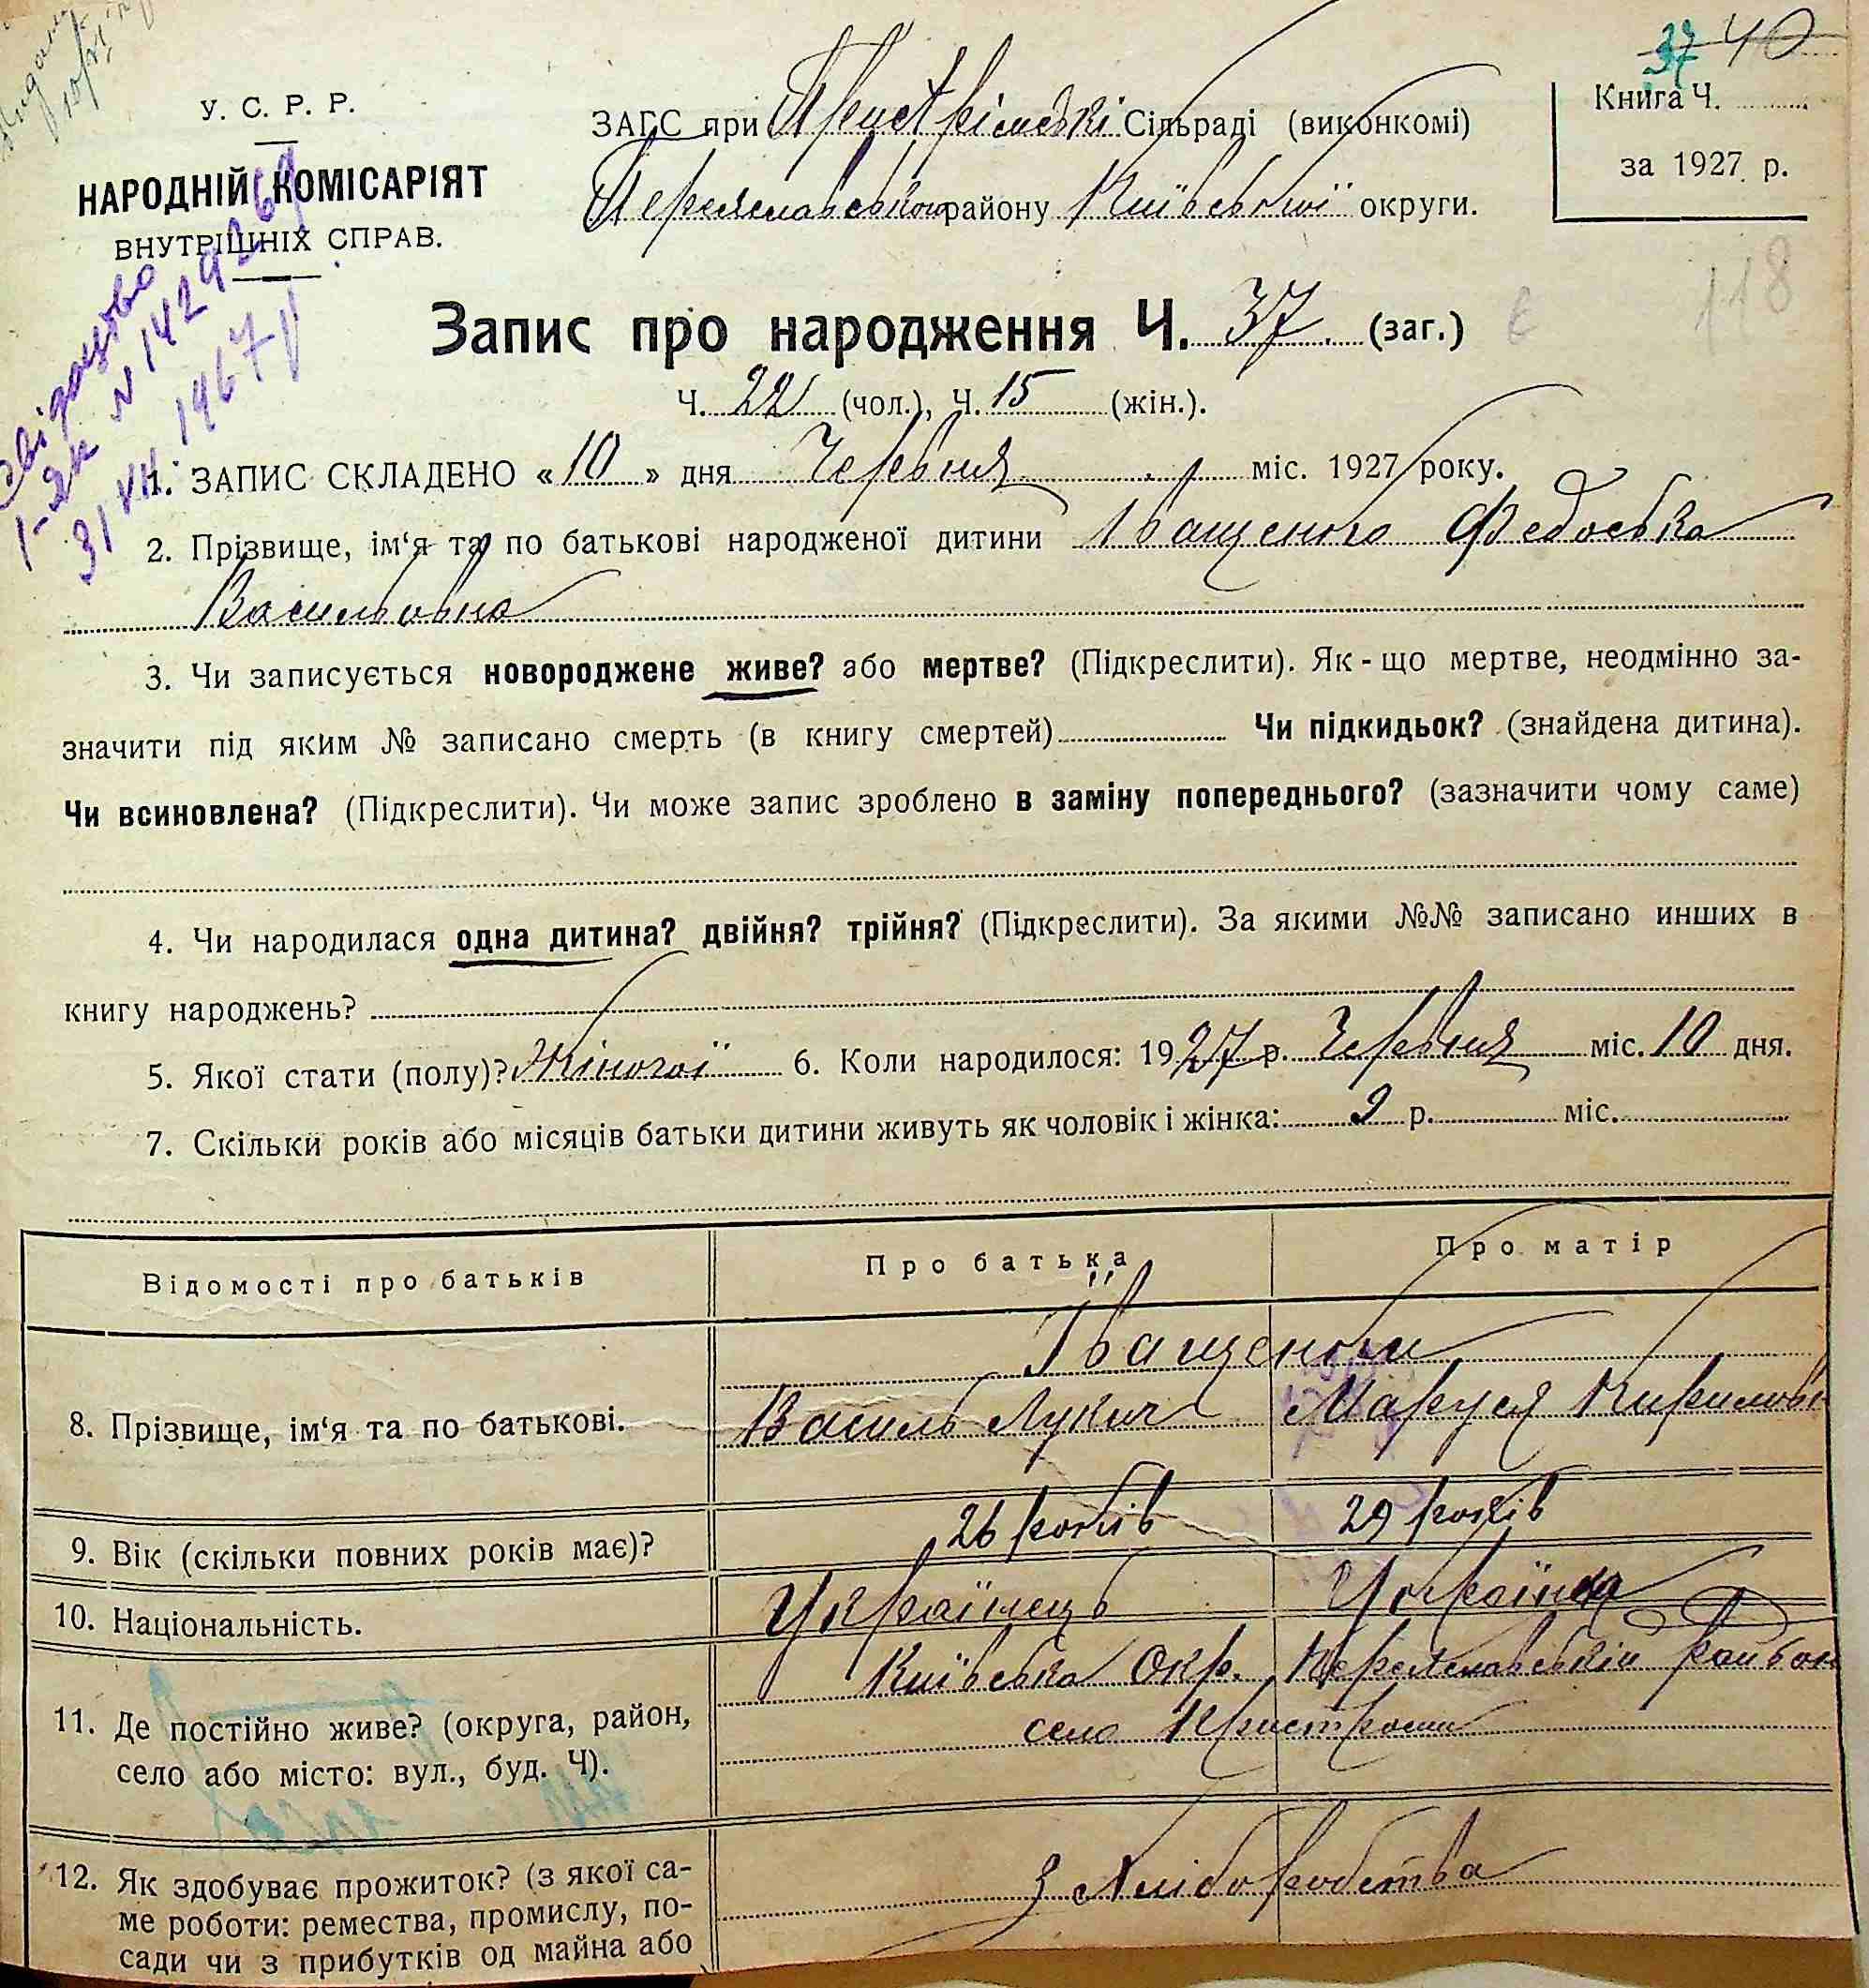 37 40
У. С. Р. Р.
НАРОДНІЙ КОМІСАРІЯТ
ВНУТРІШНІХ СПРАВ.
ЗАГС при Пристрімські Сільраді (виконкомі)
Переяславського району Київської округи.
Книга Ч.
за 1927 р.
118
свідоцтво
1-
31 VII 1967 р
Запис про народження Ч. 37 (заг.)
Ч. 22 (чол.), Ч. 15 (жін.).
1. ЗАПИС СКЛАДЕНО «10» дня Червня міс. 1927 року.
2. Прізвище, ім‘я та по батькові народженої дитини Іващенко Федоська
Васильовна
3. Чи записується новороджене живе? або мертве? (Підкреслити). Як-що мертве, неодмінно за-
значити під яким № записано смерть (в книгу смертей) Чи підкидьок? (знайдена дитина).
Чи всиновлена? (Підкреслити). Чи може запис зроблено в заміну попереднього? (зазначити чому саме)
4. Чи народилася одна дитина? двійня? трійня? (Підкреслити). За якими №№ записано инших в
книгу народжень?
5. Якої стати (полу)? Жіночої 6. Коли народилося: 1927 р. Червня міс. 10 дня.
7. Скільки років або місяців батьки дитини живуть як чоловік і жінка: 9 р. міс.
Відомості про батьків Про батька Про матір
Іващенки
8. Прізвище, ім‘я та по батькові. Василь Лукич Маруся Кирилові
9. Вік (скільки повних років має)? 26 років 29 років
10. Національність. Українець Українка
Київська Окр. Переяславській район
11. Де постійно живе? (округа, район, село Пристроми
село або місто: вул., буд. Ч).
12. Як здобуває прожиток? (з якої са- З Хліборобства
ме роботи: ремества, промислу, по-
сади чи з прибутків од майна або